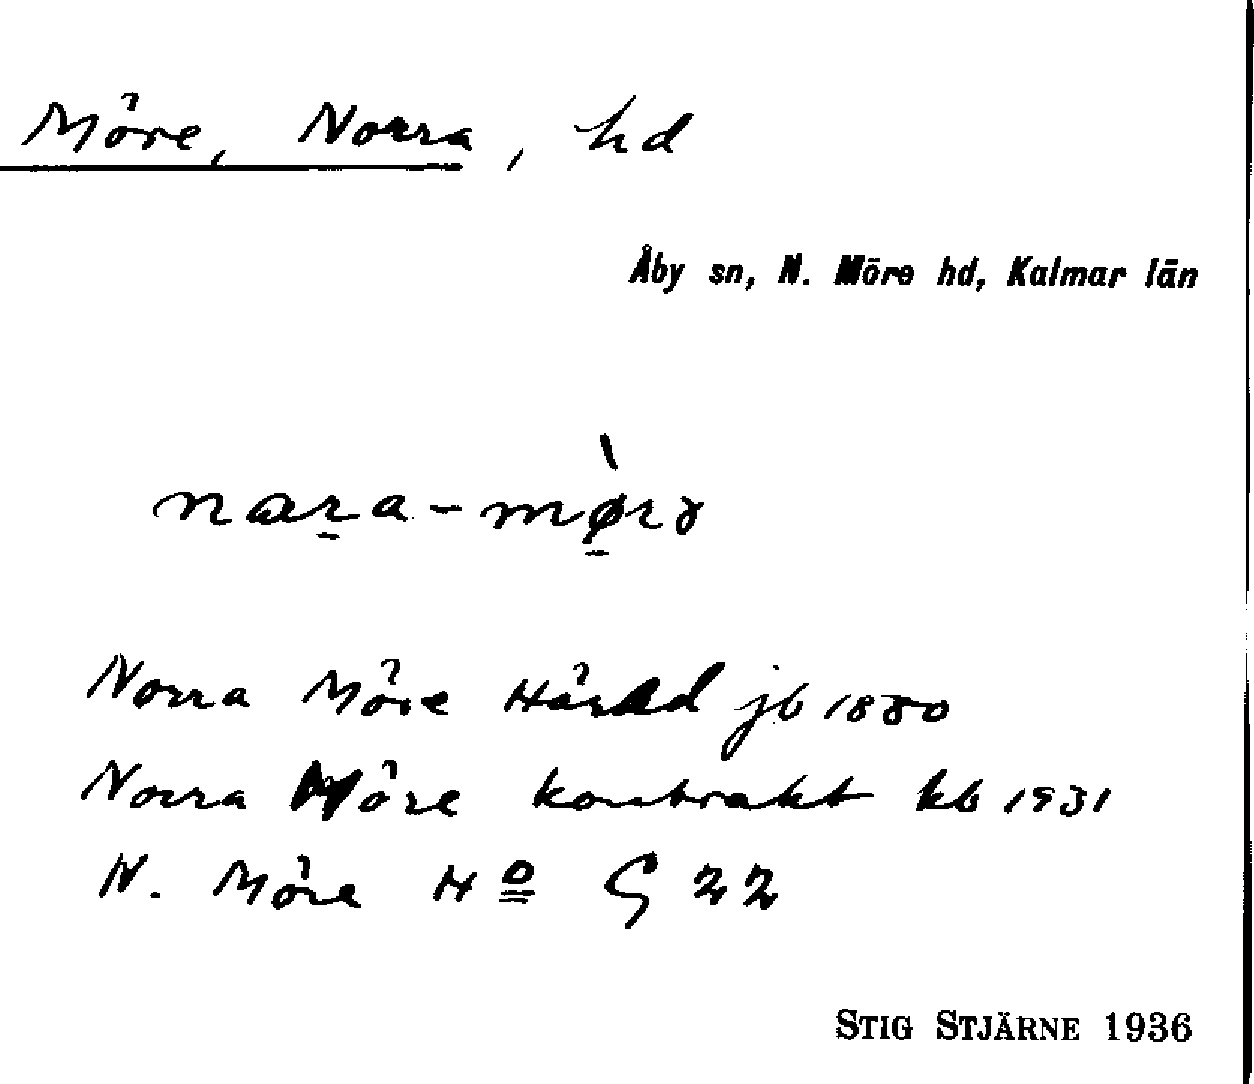 Möre, Norra, hd
Åby sn, N. Möre hd, Kalmar län
nara-mø̀rə
Norra Möre Härad jb 1880
Norra Möre kontrakt kb 1931
N. Möre Hº G 22
STIG STJÄRNE 1936